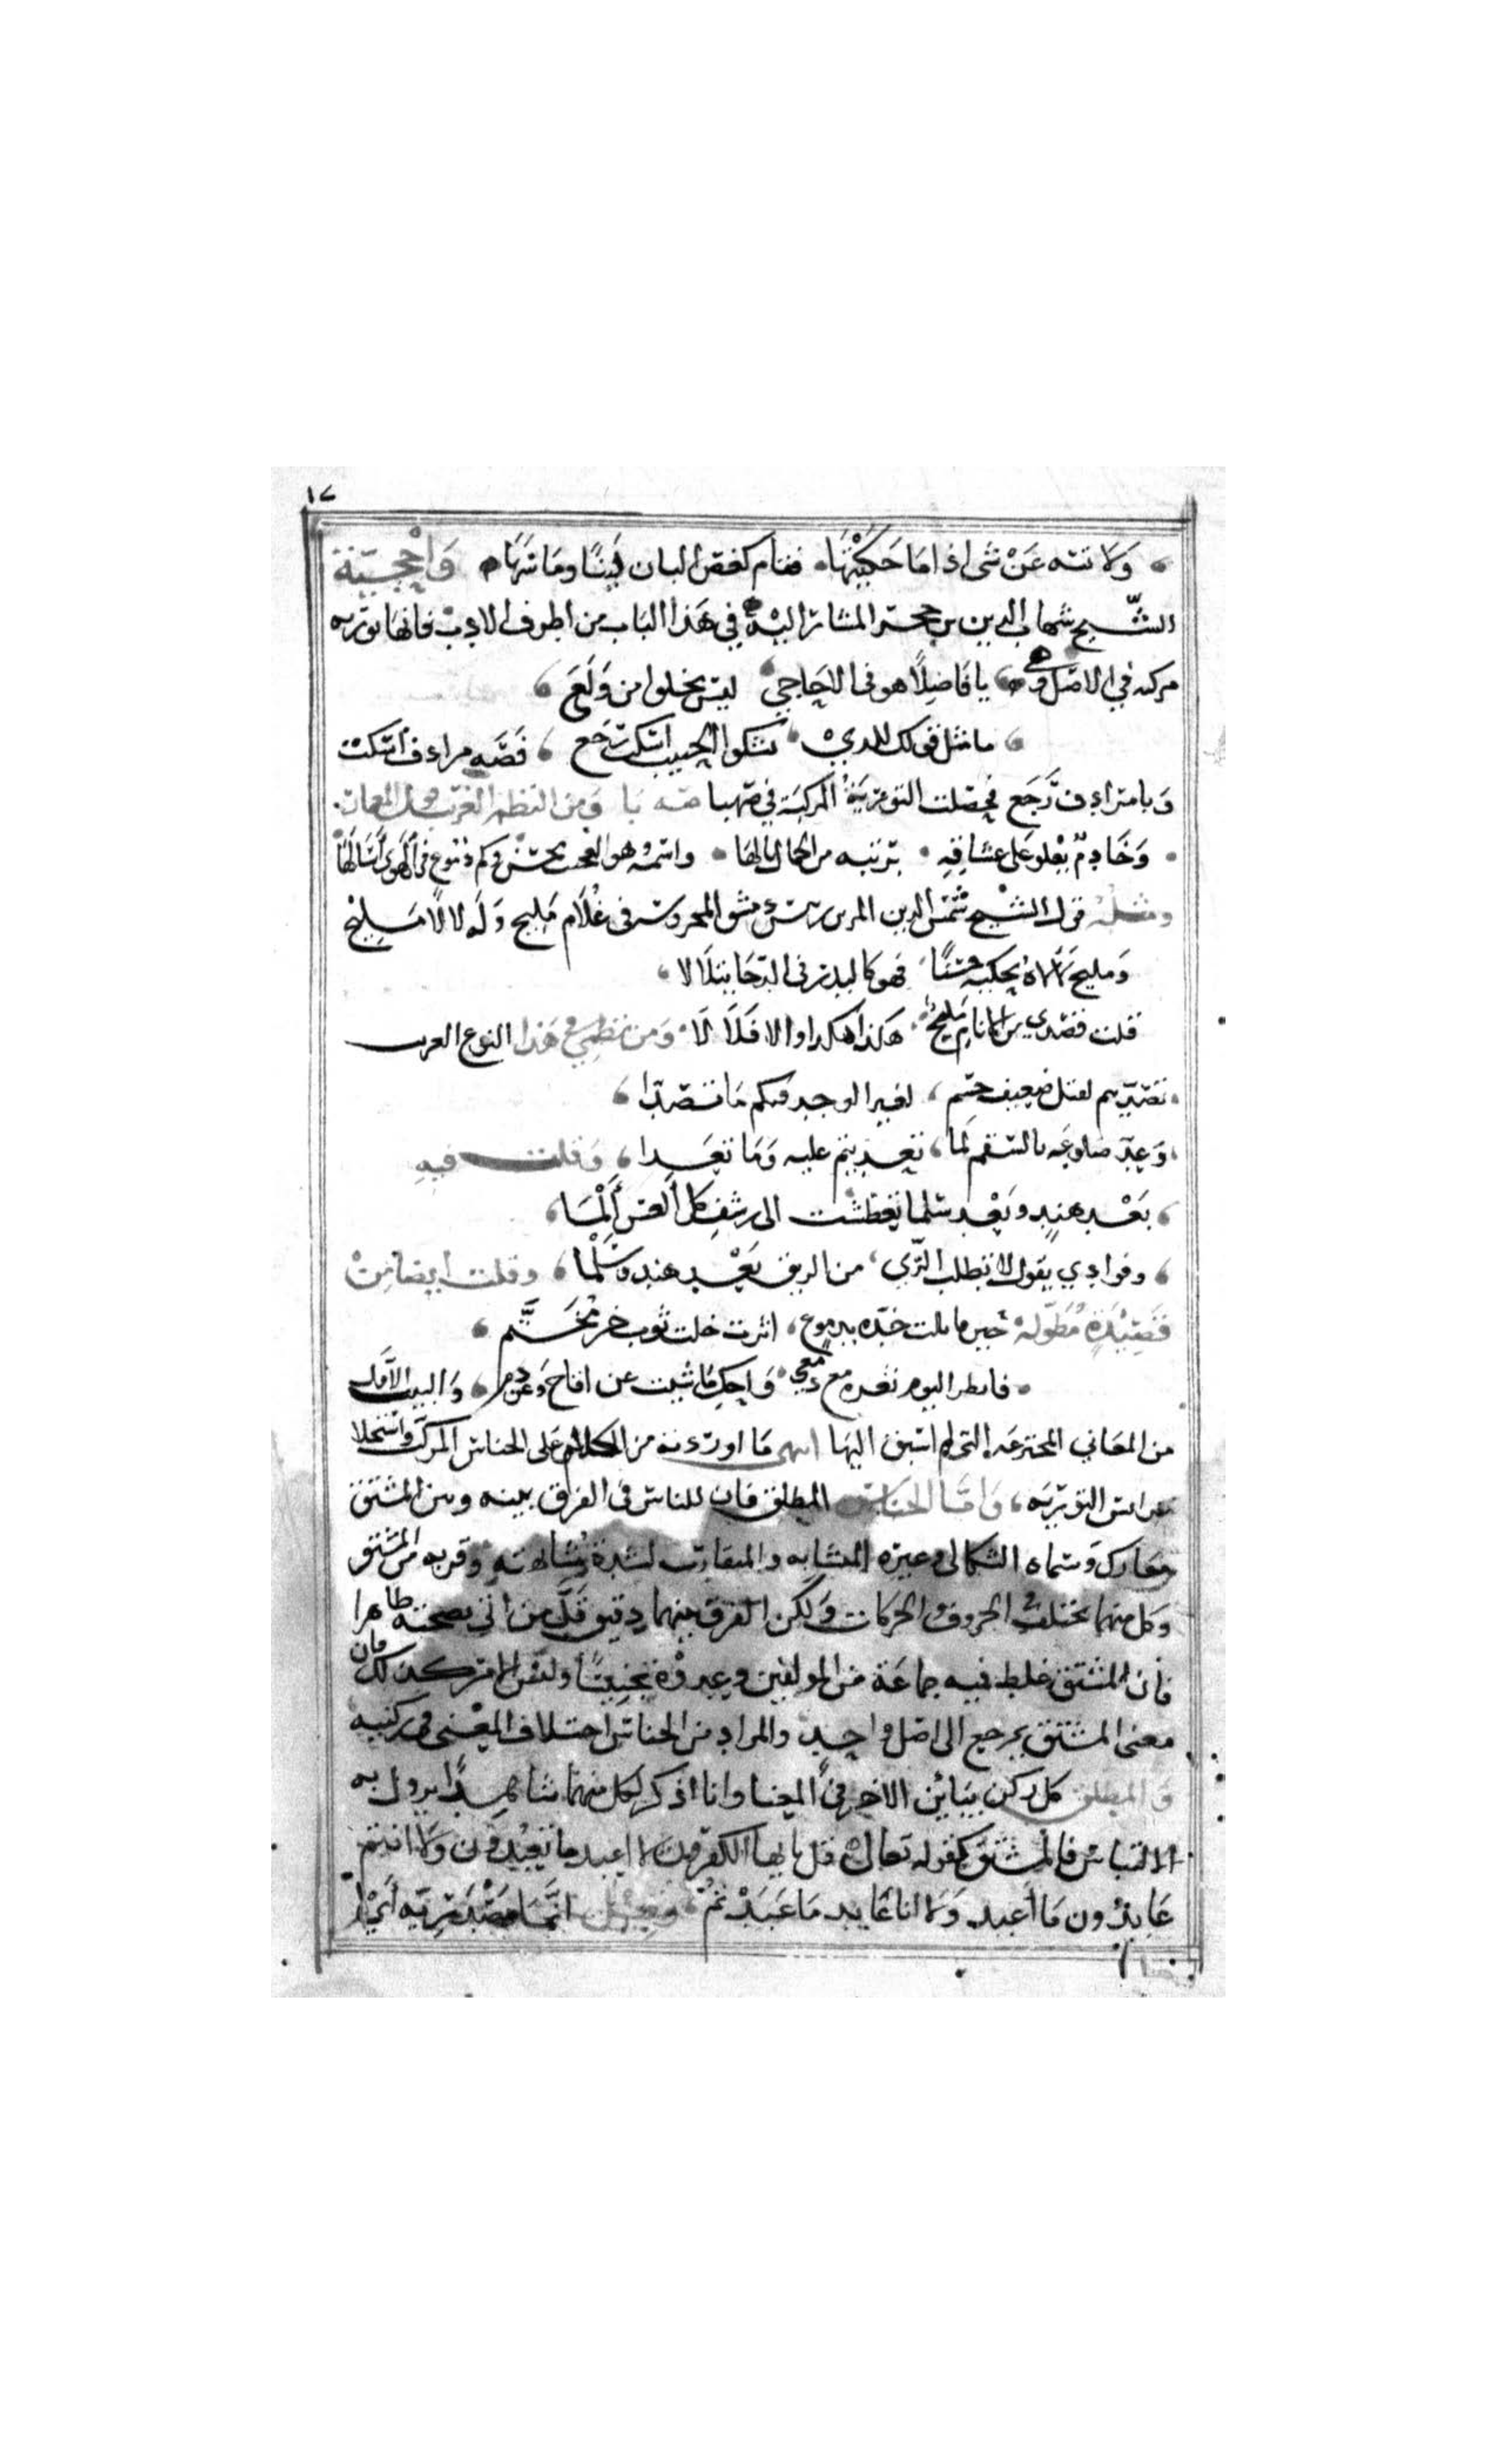 ١٧
ولا تنته عن شي اذا ما حكيتها فقام كغصن البان لينا وما نتها واحجية
الشيخ شهاب الدين بن حجر المشار اليه في هذا الباب من اظرف الادب فانها تورية
مركبه في الاصل وهي يا فاضلا هو في الاحاجي ليس يخلوا من ولع
ما مثل قولك للذي يشكوا الحبيب اسكت رجع قصه مرادف اسكت
وبا مرادف رجع فحصلت التورية المركبة في صهبا مه با ومن النظم الغريب
وخادم يعلو على عشاقه برتبه من الجمال نالها واسمه هو العجب محسن وكم دموع في الهوى اسالها
ومثله قول الشيخ شمس الدين المزين بدمشق المحروسه في غلام مليح وله لالا مليح
ومليح لالاه يحكيه حسنا فهو كالبدر في الدجا يتلالا
قلت قصدي من الانام مليح هكذا هكذا والا فلا لا ومن نظمي في هذا النوع الغريب
تصديتم لقتل ضعيف جسم لغير الوجد فيكم ما تصدا
وعد ضلوعه بالسقم لما تعديتم عليه وما تعدا وقلت فيه
بعد هند وبعد سلما تعطشت الى رشف كل العس المـا
وفوادي يقول لا تطلب الري من الريق بعد هند وسلما وقلت ايضا من
قصيدة مطولة حين قابلت خده بدموع اثرت خلت ثوب خز مختم
فانظر اليوم نقده مع دمعي واحك ما شيت عن اقاح وعن دم والبيت الاول
من المعاني المخترعه التي لم اسبق اليها انتهى ما اوردته من الكلام على الجناس المركب واستجلا
عرائس التورية واما الجناس المطلق فان للناس في الفرق بينه وبين المشتق
معارك وسماه السكاكي وغيره المتشابه والمتقارب لشدة مشابهته وقربه من المشتق
وكل منهما يختلف في الحروف والحركات ولكن الفرق بينهما دقيق قل من اتي بصحته ظاهرا
فان المشتق غلط فيه جماعة من المولفين وعدوه تجنيسا وليس الامر كذلك فان
معنى المشتق يرجع الى اصل واحد والمراد من الجناس اختلاف المعنى في ركنيه
والمطلق كل ركن يباين الاخر في المعنا وانا اذكر لكل منهما شاهدا يزول به
الالتباس فالمشتق كقوله تعالى قل يايها الكفرون لا اعبد ما تعبدون ولا انتم
عابدون ما اعبد ولا انا عابد ما عبدتم